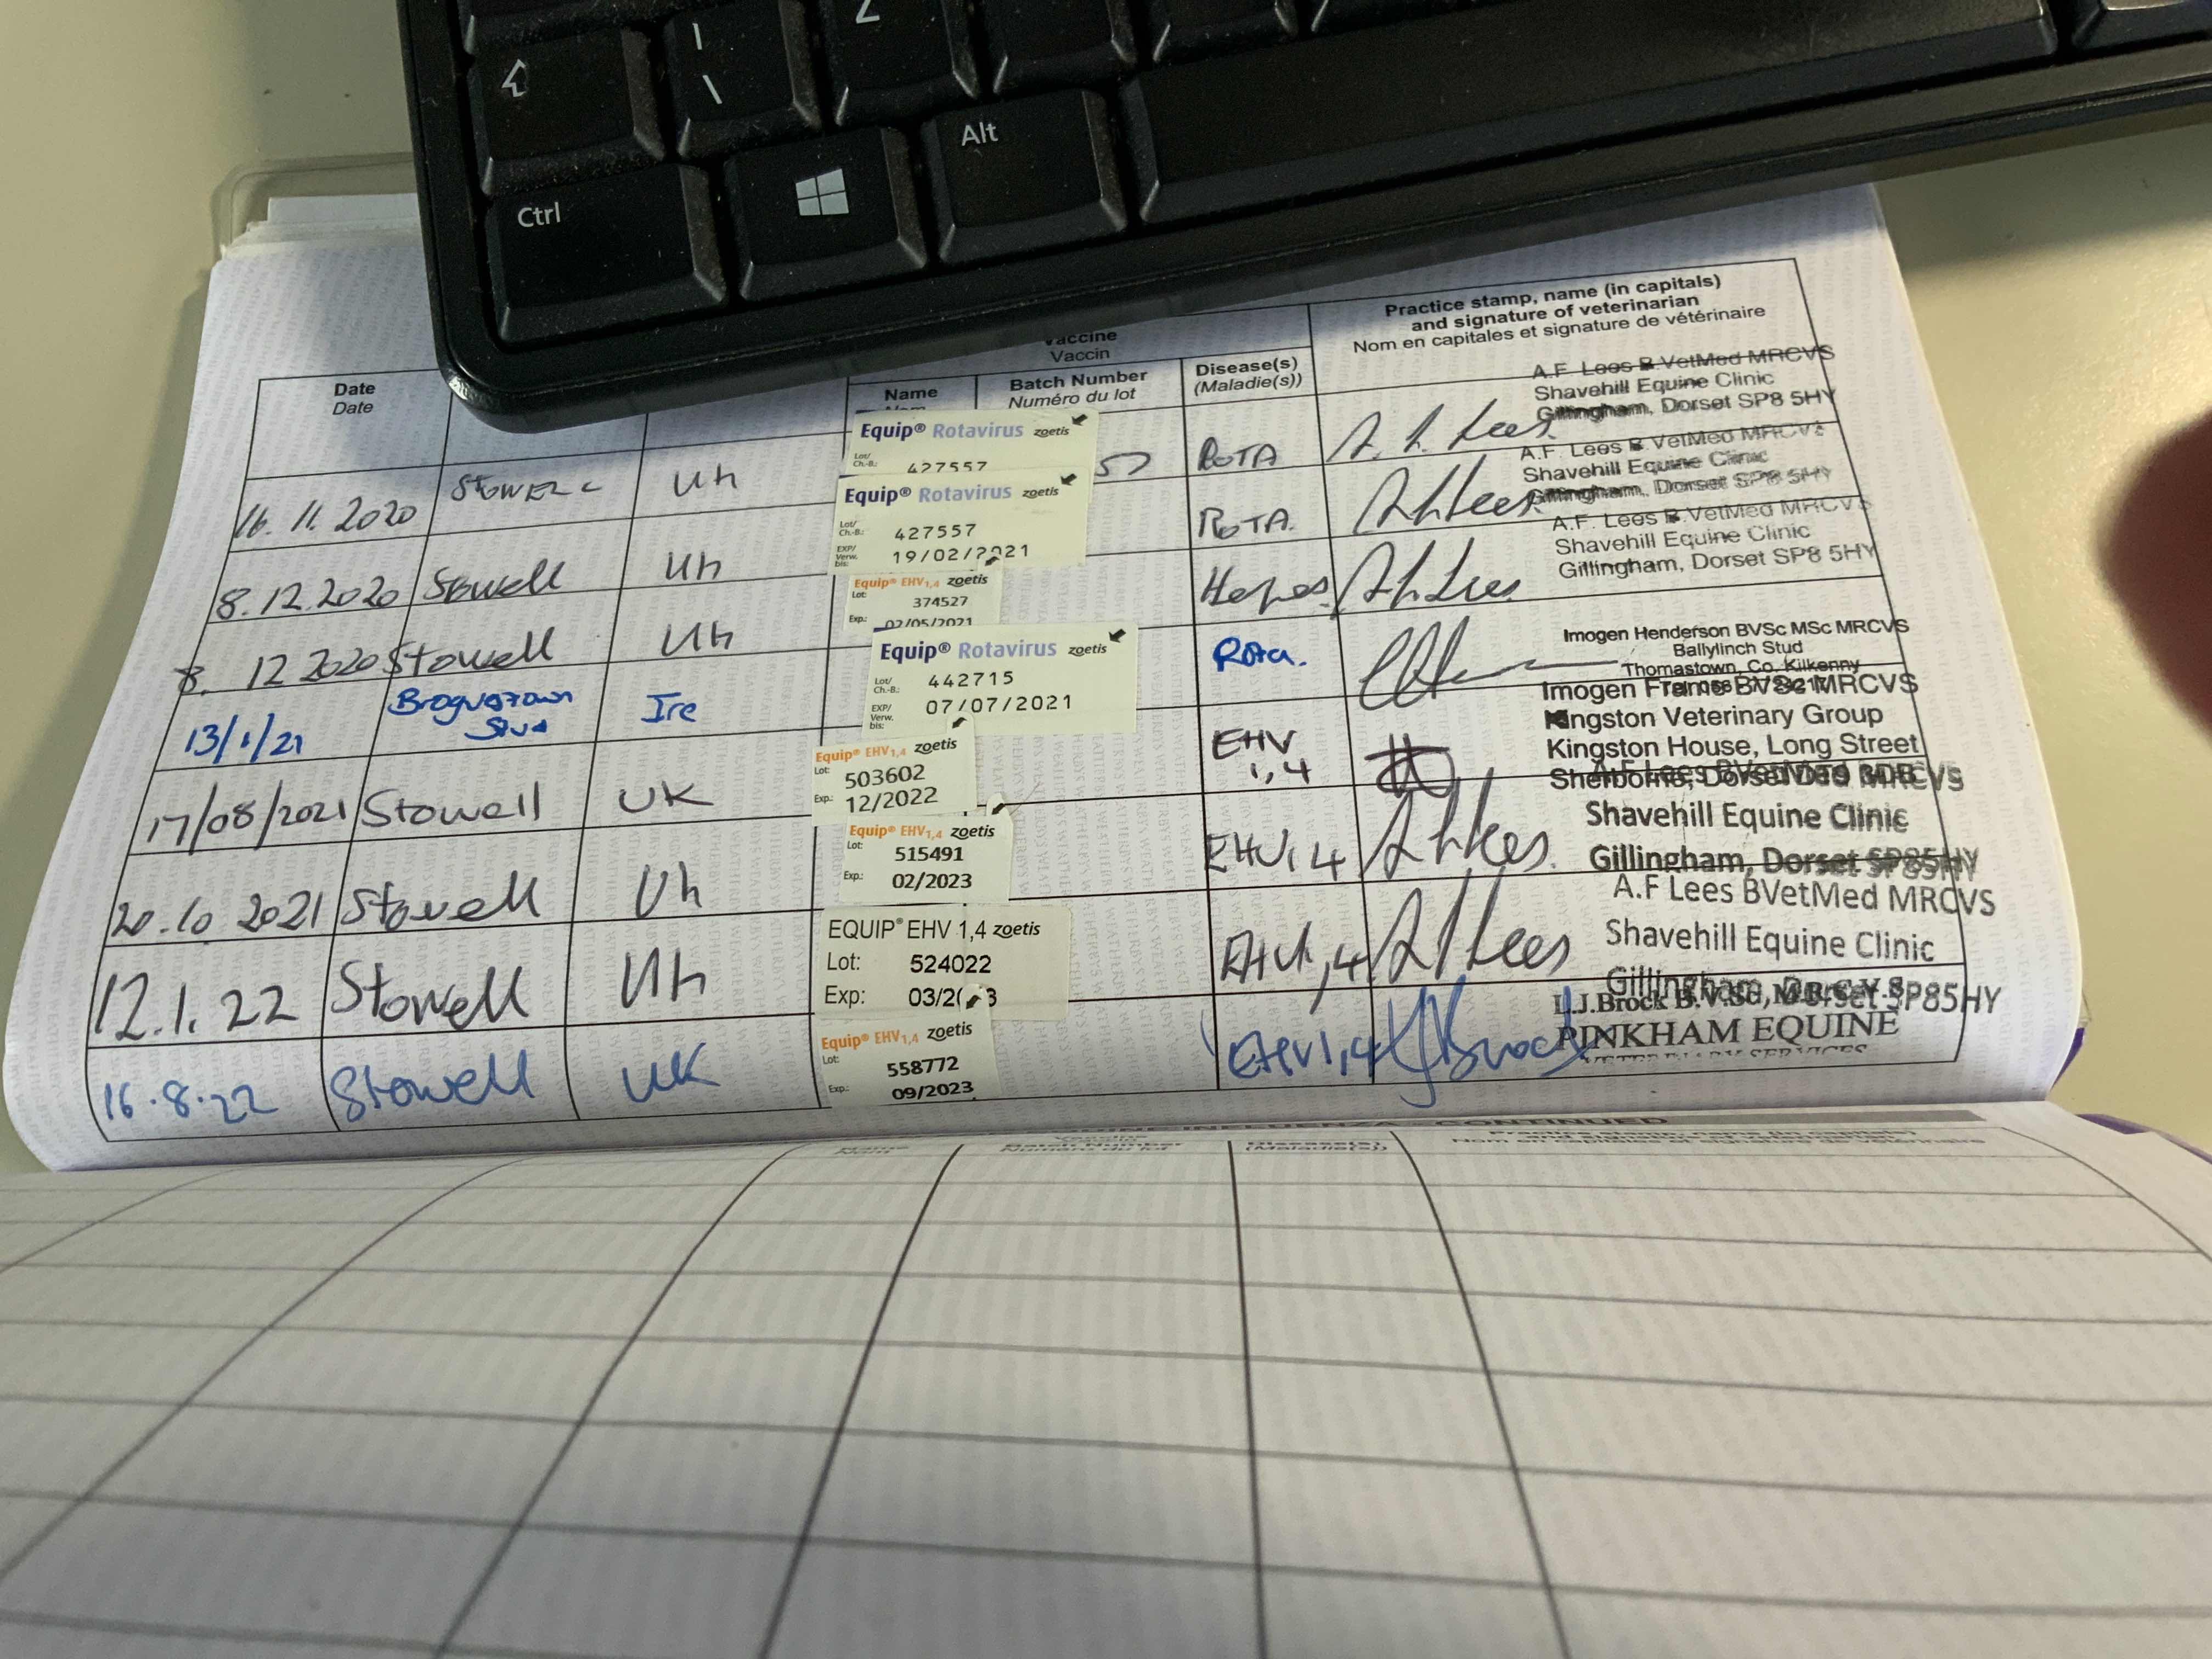 Z
\
Alt
Ctrl
Practice stamp, name (in capitals)
and signature of veterinarian
Nom en capitales et signature de vétérinaire
Vaccine
Vaccin
Date
Date
Name
Batch Number
Numéro du lot
Disease(s)
(Maladie(s))
16.11.2020
Stowell
Uk
Equip® Rotavirus zoetis
Lot/
Ch.-B.:
427557
57
ROTA
A. F. Lees
A.F. Lees B VetMed MRCVS
Shavehill Equine Clinic
Gillingham, Dorset SP8 5HY
8.12.2020
Stowell
Uk
Equip® Rotavirus zoetis
Lot/
Ch.-B.:
427557
EXP/
Verw.
bis:
19/02/2021
ROTA.
A.F. Lees B VetMed MRCVS
Shavehill Equine Clinic
Gillingham, Dorset SP8 5HY
8. 12 2020
Stowell
Uk
Equip® EHV1,4 zoetis
Lot:
374527
Exp.:
02/05/2021
A.F. Lees B VetMed MRCVS
Shavehill Equine Clinic
Gillingham, Dorset SP8 5HY
13/1/21
Stud
Ire
Equip® Rotavirus zoetis
Lot/
Ch.-B.:
442715
EXP/
Verw.
bis:
07/07/2021
Rota.
Imogen Henderson BVSc MSc MRCVS
Ballylinch Stud
Thomastown, Co. Kilkenny
17/08/2021
Stowell
UK
Equip® EHV1,4 zoetis
Lot:
503602
Exp.:
12/2022
EHV
1,4
Imogen Frame BVSc MRCVS
Kingston Veterinary Group
Kingston House, Long Street
Sherborne, Dorset DT9 3DB
20.10 2021
Stowell
Uk
Equip® EHV1,4 zoetis
Lot:
515491
Exp.:
02/2023
EHV1,4
A.F Lees BVetMed MRCVS
Shavehill Equine Clinic
Gillingham, Dorset SP85HY
12.1.22
Stowell
Uk
EQUIP® EHV 1,4 zoetis
Lot: 524022
Exp: 03/2 3
EHV1,4
A.F Lees BVetMed MRCVS
Shavehill Equine Clinic
Gillingham, Dorset SP85HY
16.8.22
Stowell
UK
Equip® EHV1,4 zoetis
Lot:
558772
Exp.:
09/2023
EHV1,4
L.J.Brock B.V.Sc, M.R.C.V.S.
PINKHAM EQUINE
VETERINARY SERVICES
INFLUENZA - CONTINUED
Name
Nom
Batch Number
Numéro du lot
Disease(s)
(Maladie(s))
Nom en capitales et signature de vétérinaire